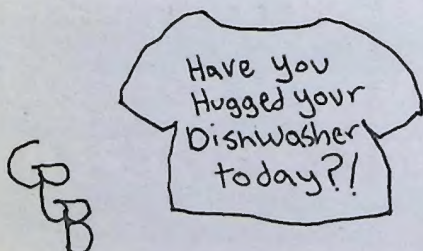 Have you
Hugged your
Dishwasher
today?!